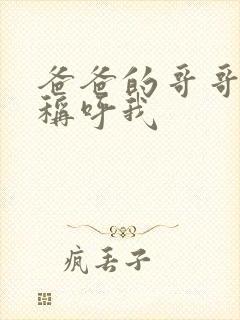 爸爸的哥哥
稱呼我
疯丢子